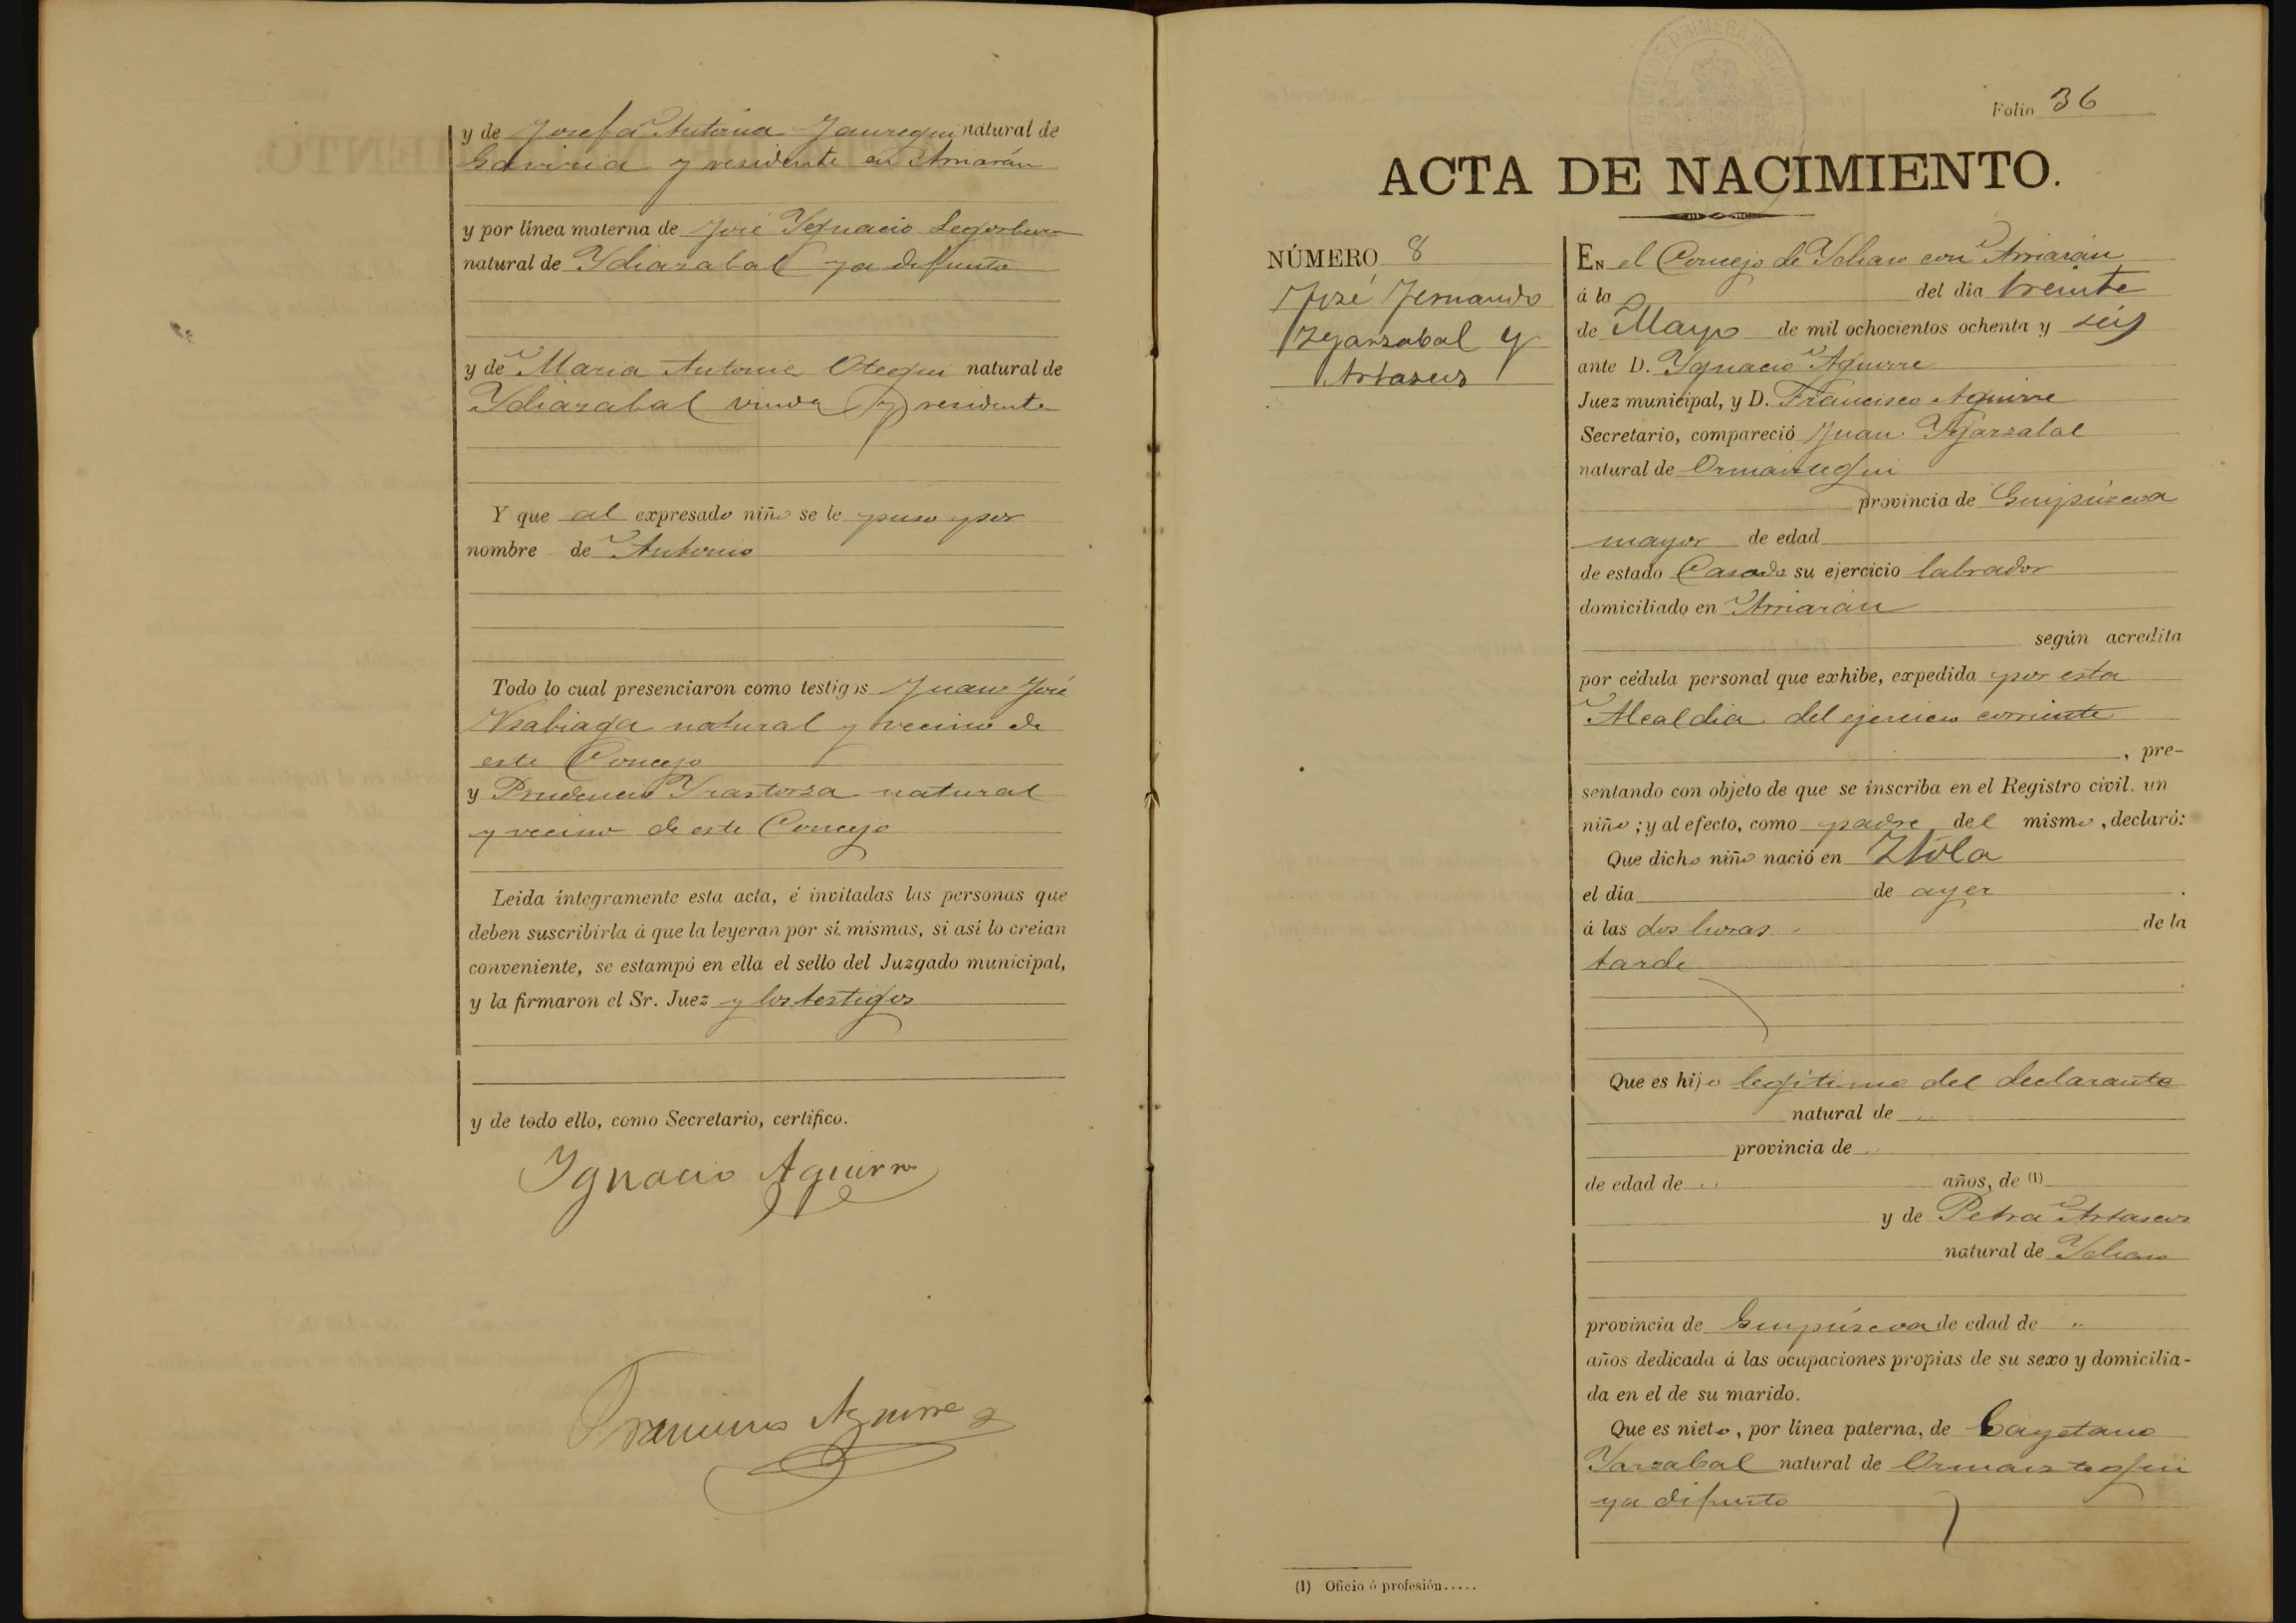 y de Josefa Antonia Jauregui natural de
Gaviria y residente en Arriarán
y por línea materna de José Ygnacio Legorburu
natural de Ydiazabal ya difunto
y de Maria Antonia Otegui natural de
Ydiazabal viuda y residente
Y que al expresado niño se le puso por
nombre de Antonio
Todo lo cual presenciaron como testigos Juan José
Ysabiaga natural y vecino de
este Concejo
y Prudencio Yrastorza natural
y vecino de este Concejo
Leida íntegramente esta acta, é invitadas las personas que
deben suscribirla á que la leyeran por sí mismas, si así lo creían
conveniente, se estampó en ella el sello del Juzgado municipal,
y la firmaron el Sr. Juez y los testigos
y de todo ello, como Secretario, certifico.
Ygnacio Aguirre
Francisco Aguirre
Folio 36
ACTA DE NACIMIENTO.
NÚMERO 8
José Fernando
Ygarzabal y
Artaseus
EN el Concejo de Ychaso con Arriarán
á la del dia treinte
de Mayo de mil ochocientos ochenta y seis
ante D. Ygnacio Aguirre
Juez municipal, y D. Francisco Aguirre
Secretario, compareció Juan Ygarzabal
natural de Ormaiztegui
provincia de Guipúzcoa
mayor de edad
de estado Casado su ejercicio labrador
domiciliado en Arriarán
según acredita
por cédula personal que exhibe, expedida por esta
Alcaldia del ejercicio corriente
, pre-
sentando con objeto de que se inscriba en el Registro civil, un
niño; y al efecto, como padre del mismo, declaró:
Que dicho niño nació en
el día de ayer
á las dos horas de la
tarde
Que es hijo legítimo del declarante
natural de "
provincia de "
de edad de " años, de (1)
y de Petra Artaseus
natural de Ychaso
provincia de Guipúzcoa de edad de "
años dedicada á las ocupaciones propias de su sexo y domicilia-
da en el de su marido.
Que es nieto, por línea paterna, de Cayetano
Yarzabal natural de Ormaiztegui
ya difunto
(1) Oficio ó profesión.....